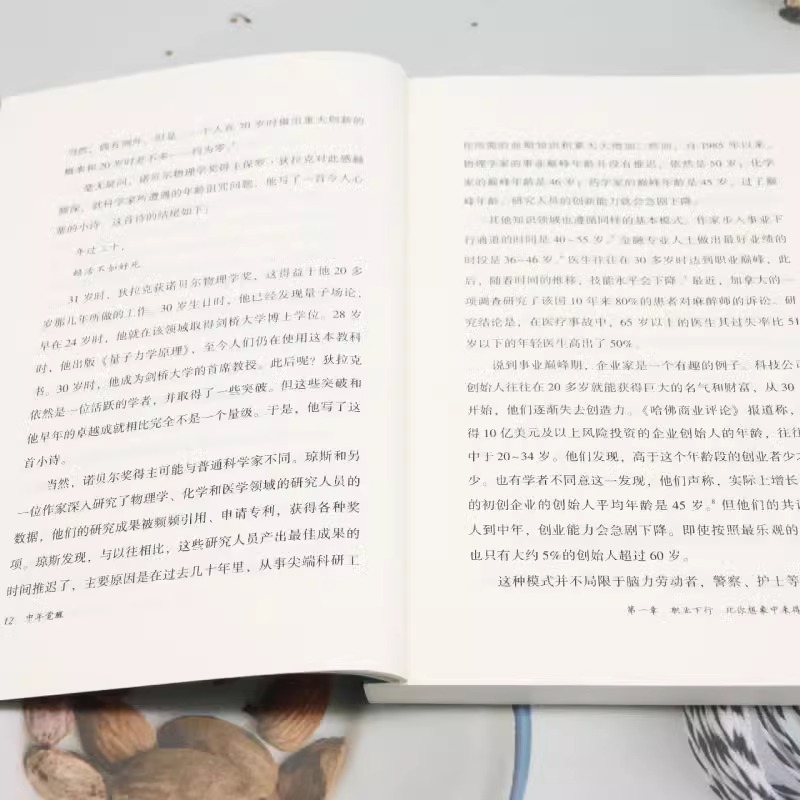 当然，偶有例外，但是，一个人在70岁时做出重大创新的
概率和20岁时差不多——约为零。
毫无疑问，诺贝尔物理学奖得主保罗·狄拉克对此感触
颇深，就科学家所遭遇的年龄诅咒问题，他写了一首令人心
塞的小诗，这首诗的结尾如下：
年过三十，
赖活不如好死
31岁时，狄拉克获诺贝尔物理学奖，这得益于他20多
岁那几年所做的工作。30岁生日时，他已经发现量子场论，
早在24岁时，他就在该领域取得剑桥大学博士学位。28岁
时，他出版《量子力学原理》，至今人们仍在使用这本教科
书。30岁时，他成为剑桥大学的首席教授。此后呢？狄拉克
依然是一位活跃的学者，并取得了一些突破。但这些突破和
他早年的卓越成就相比完全不是一个量级。于是，他写了这
首小诗。
当然，诺贝尔奖得主可能与普通科学家不同。琼斯和另
一位作家深入研究了物理学、化学和医学领域的研究人员的
数据，他们的研究成果被频频引用、申请专利，获得各种奖
项。琼斯发现，与以往相比，这些研究人员产出最佳成果的
时间推迟了，主要原因是在过去几十年里，从事尖端科研工
12 中年觉醒
作所需的前期知识积累大大增加。然而，自1985年以来，
物理学家的事业巅峰年龄并没有推迟，依然是50岁；化学
家的巅峰年龄是46岁；药学家的巅峰年龄是45岁。过了巅
峰年龄，研究人员的创新能力就会急剧下降。
其他知识领域也遵循同样的基本模式。作家步入事业下
行通道的时间是40~55岁。金融专业人士做出最好业绩的
时段是36~46岁。医生往往在30多岁时达到职业巅峰，此
后，随着时间的推移，技能水平会下降。最近，加拿大的一
项调查研究了该国10年来80%的患者对麻醉师的诉讼。研
究结论是，在医疗事故中，65岁以上的医生其过失率比51
岁以下的年轻医生高出了50%。
说到事业巅峰期，企业家是一个有趣的例子。科技公司
创始人往往在20多岁就能获得巨大的名气和财富，从30
开始，他们逐渐失去创造力。《哈佛商业评论》报道称，
得10亿美元及以上风险投资的企业创始人的年龄，往往
中于20~34岁。他们发现，高于这个年龄段的创业者少之
少。也有学者不同意这一发现，他们声称，实际上增长
的初创企业的创始人平均年龄是45岁。⁸但他们的共识
人到中年，创业能力会急剧下降。即使按照最乐观的
也只有大约5%的创始人超过60岁。
这种模式并不局限于脑力劳动者，警察、护士等
第一章 职业下行 比你想象中来得